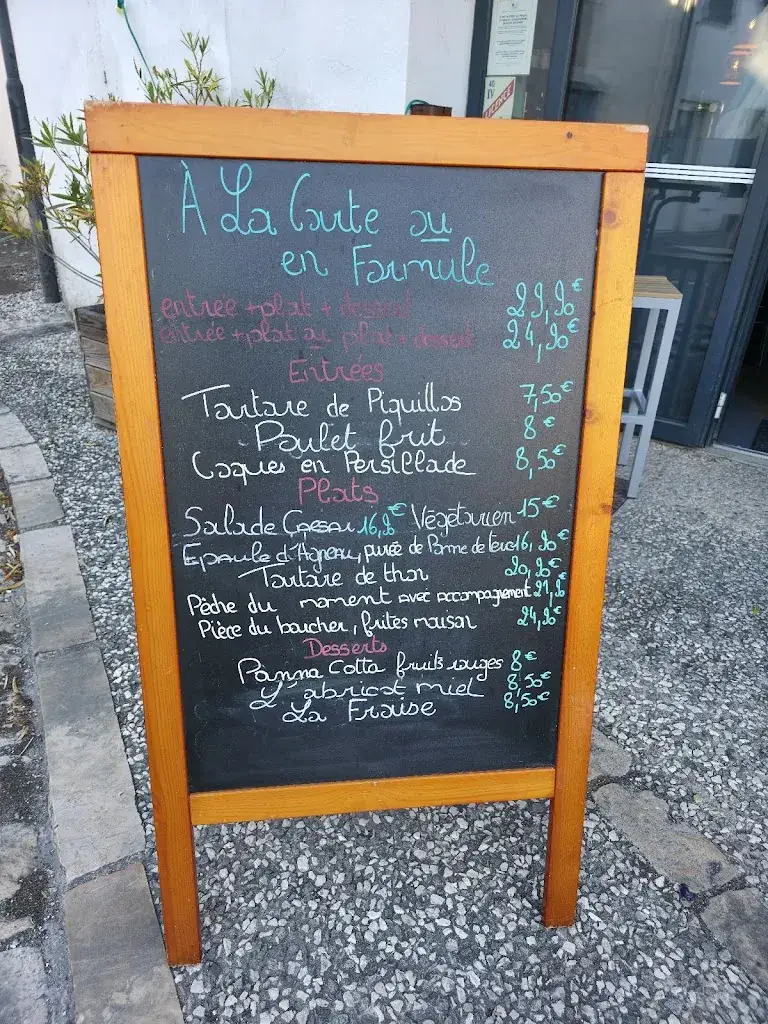 À La Carte ou
en Formule
entrée + plat + dessert 29,90€
entrée + plat ou plat + dessert 24,90€
Entrées
Tartare de Piquillos 7,50€
Poulet frit 8€
Coques en Persillade 8,50€
Plats
Salade Caesar 16,90€ Végétarien 15€
Epaule d'Agneau, purée de Pomme de terre 16,90€
Tartare de thon 20,90€
Pêche du moment avec accompagnement 21,90€
Pièce du boucher, frites maison 24,90€
Desserts
Panna Cotta fruits rouges 8€
L'abricot miel 8,50€
La Fraise 8,50€
LICENCE